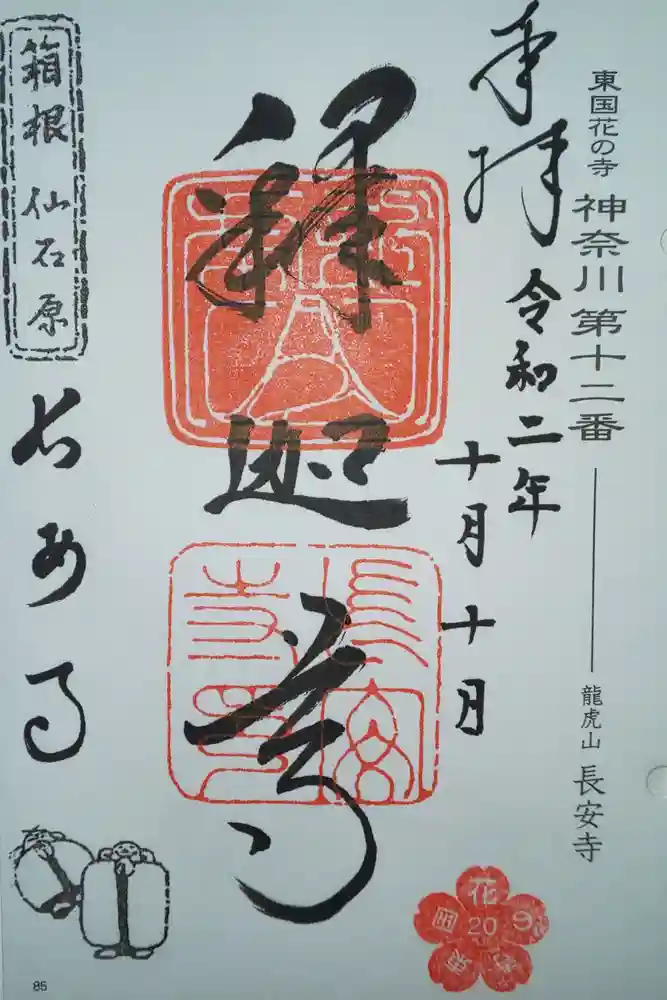 東国花の寺 神奈川第十二番 龍虎山 長安寺
奉拝 令和二年
十月十月
釋迦尊
長安寺印
箱根 仙石原
長安寺
東国花の寺
20
85